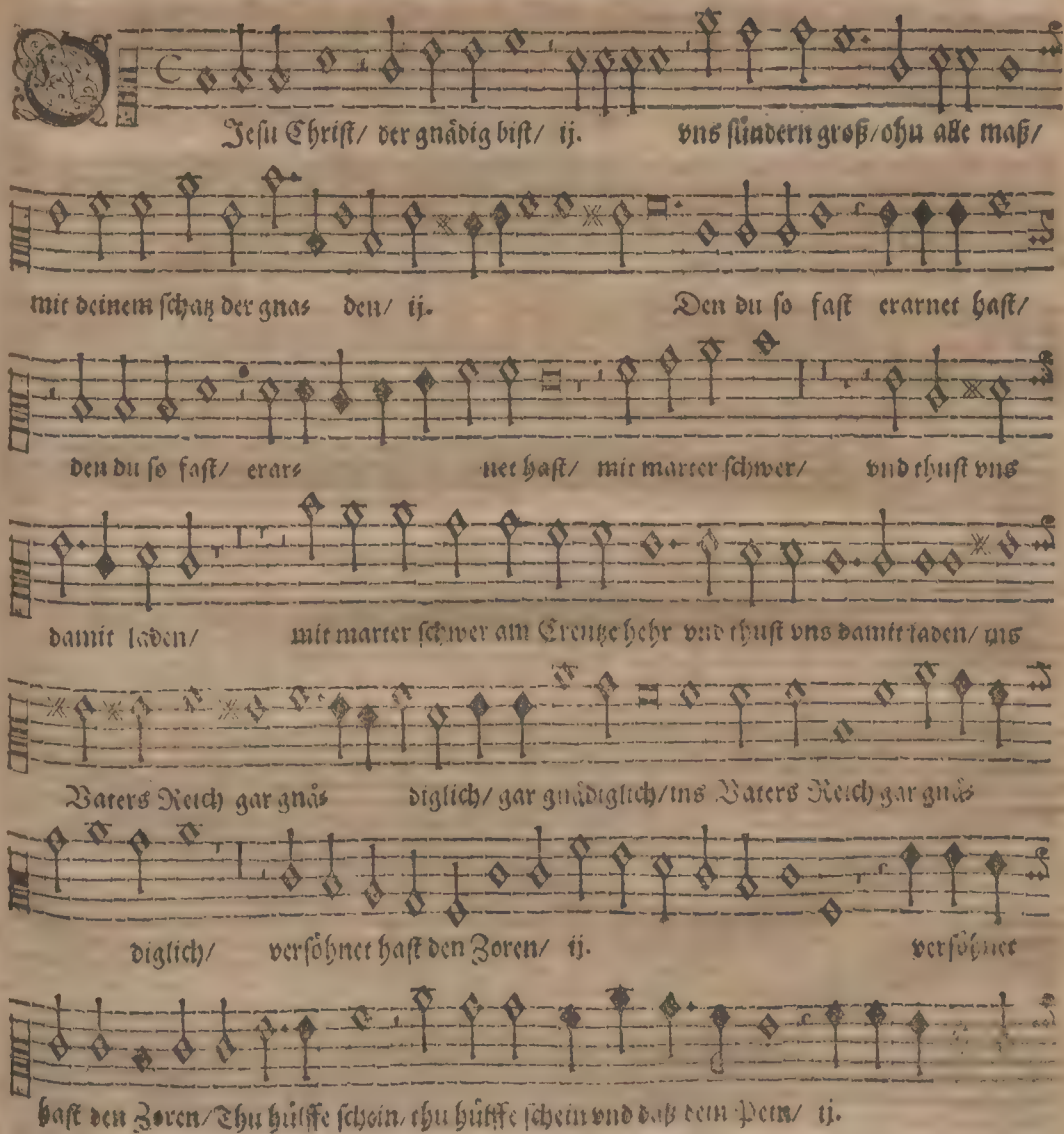 O Jesu Christ/ der gnädig bist/ ij. vns sündern groß/ ohn alle maß/
mit deinem schatz der gnas den/ ij. Den du so fast erarnet hast/
den du so fast/ erars net hast/ mit marter schwer/ vnd thust vns
damit laden/ mit marter schwer am Creutze hehr vnd thust vns damit laden/ ins
Vaters Reich gar gnäs diglich/ gar gnädiglich/ ins Vaters Reich gar gnäs
diglich/ versöhnet hast den Zoren/ ij. versöhnet
hast den Zoren/ Thu hülffe schein/ thu hülffe schein vnd daß dein Pein/ ij.